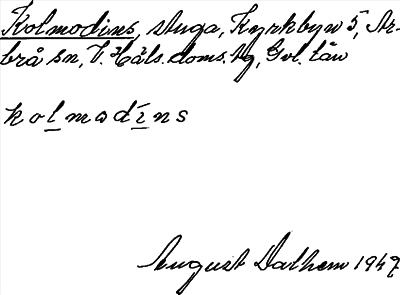 Kolmodins, stuga, Kyrkbyn 5, Ar-
brå sn, V. Häls. doms. hg, Gvl. län
kolmodins
August Dalhem 1947